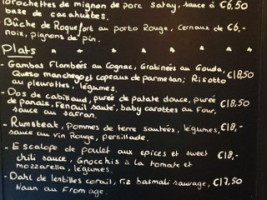 Brochettes de mignon de porc satay, sauce à €6,50
base de cacahuètes.
Bûche de Roquefort au porto Rouge, cerneaux de €6,-
noix, pignons de pin.
Plats
- Gambas Flambées au Cognac, Gratinées au Gouda,
Queso manchego et copeaux de parmesan; Risotto €18,50
aux pleurottes, légumes.
- Dos de Cabillaud, purée de patate douce, purée
de panais, Fenouil sauté, baby carottes au Four, €18,50
sauce au safran.
- Rumsteak, Pommes de terre sautées, légumes, €18,-
sauce au vin Rouge, persillade.
- Escalope de poulet aux épices et sweet €18,-
chili sauce. Gnocchis à la tomate et
mozzarella, légumes.
- Dahl de lentilles corail, riz basmati sauvage, €17,50
Naan au Fromage.